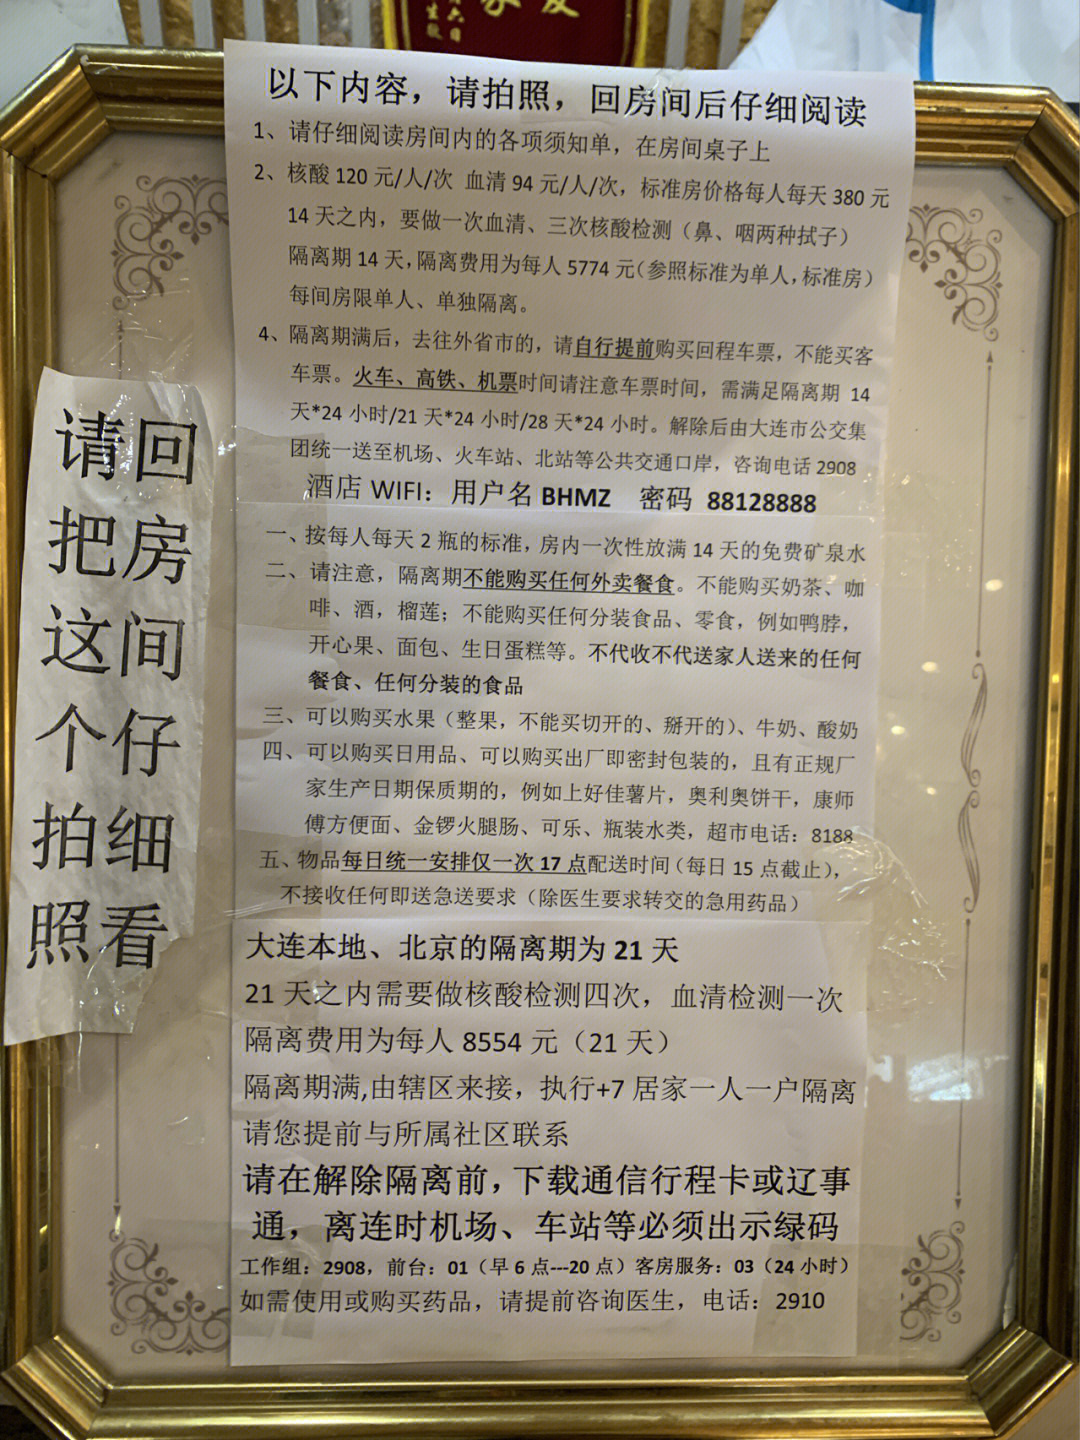 六日
以下内容，请拍照，回房间后仔细阅读
1、请仔细阅读房间内的各项须知单，在房间桌子上
2、核酸 120 元/人/次 血清 94 元/人/次，标准房价格每人每天 380 元
14 天之内，要做一次血清、三次核酸检测（鼻、咽两种拭子）
隔离期 14 天，隔离费用为每人 5774 元（参照标准为单人，标准房）
每间房限单人、单独隔离。
4、隔离期满后，去往外省市的，请自行提前购买回程车票，不能买客
车票。火车、高铁、机票时间请注意车票时间，需满足隔离期 14
天*24 小时/21 天*24 小时/28 天*24 小时。解除后由大连市公交集
团统一送至机场、火车站、北站等公共交通口岸，咨询电话 2908
酒店 WIFI：用户名 BHMZ 密码 88128888
一、按每人每天 2 瓶的标准，房内一次性放满 14 天的免费矿泉水
二、请注意，隔离期不能购买任何外卖餐食。不能购买奶茶、咖
啡、酒，榴莲；不能购买任何分装食品、零食，例如鸭脖，
开心果、面包、生日蛋糕等。不代收不代送家人送来的任何
餐食、任何分装的食品
三、可以购买水果（整果，不能买切开的、掰开的）、牛奶、酸奶
四、可以购买日用品、可以购买出厂即密封包装的，且有正规厂
家生产日期保质期的，例如上好佳薯片，奥利奥饼干，康师
傅方便面、金锣火腿肠、可乐、瓶装水类，超市电话：8188
五、物品每日统一安排仅一次 17 点配送时间（每日 15 点截止），
不接收任何即送急送要求（除医生要求转交的急用药品）
大连本地、北京的隔离期为 21 天
21 天之内需要做核酸检测四次，血清检测一次
隔离费用为每人 8554 元（21 天）
隔离期满,由辖区来接，执行+7 居家一人一户隔离
请您提前与所属社区联系
请在解除隔离前，下载通信行程卡或辽事
通，离连时机场、车站等必须出示绿码
工作组：2908，前台：01（早 6 点---20 点）客房服务：03（24 小时）
如需使用或购买药品，请提前咨询医生，电话：2910
请回
把房
这间
个仔
拍细
照看